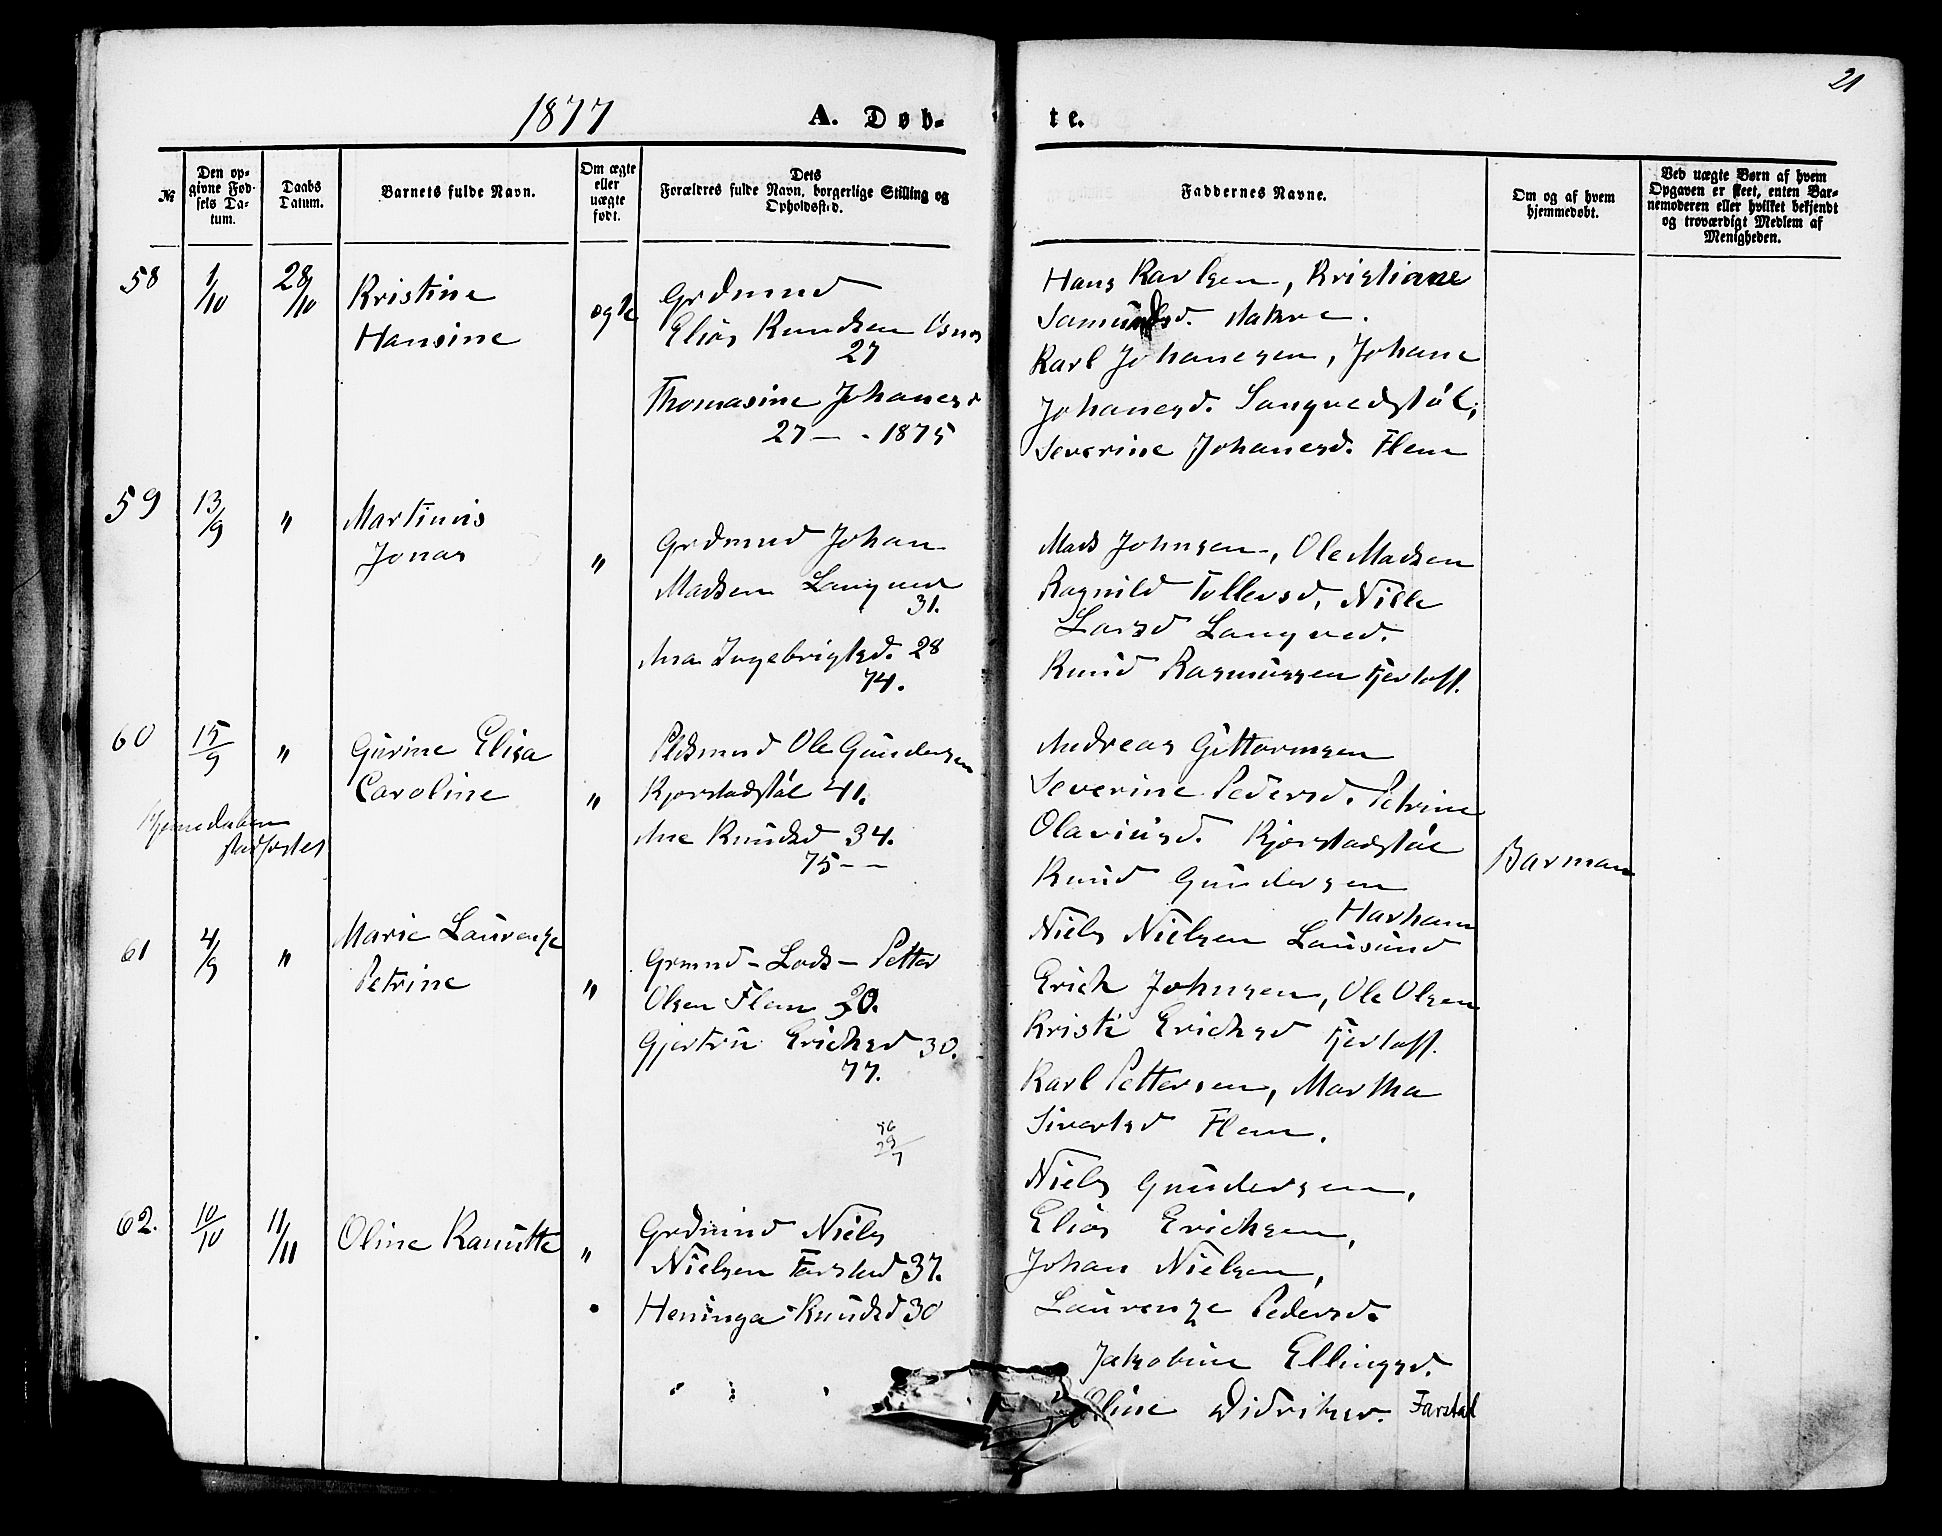 21
1877 A. Døb- te.
№
Den op-
givne Fød-
sels Da-
tum.
Daabs
Datum.
Barnets fulde Navn.
Om ægte
eller
uægte
født.
Dets
Forældres fulde Navn, borgerlige Stilling og
Opholdssted.
Faddernes Navne.
Om og af hvem
hjemmedøbt.
Ved uægte Børn af hvem
Opgaven er skeet, enten Bar-
nemoderen eller hvilket bekjendt
og troværdigt Medlem af
Menigheden.
58 1/10 28/10 Kristine
Hansine
ægte
Grdmnd
Elias Knudsen Osnes
27
Thomasine Johanesd
27 — - 1875
Hans Karlsen, Kristiane
Samundsd.
Karl Johanesen, Johane
Johanesd. Longvedstøl,
Severine Johanesd. Flem
59 13/9 " Martinus
Jonas
"
Grdmnd Johan
Madsen Longved
31.
Ana Ingebrigtsd. 28
74.
Mads Johnsen, Ole Madsen
Ragnild Tollevsd, Nille
Larsd Longved.
Knud Rasmussen Fjertoff.
60 15/9 " Gurine Elisa
Caroline
"
Hjemedaben
stadfæstet
Pldsmnd Ole Gundersen
Kjorstadstøl 41.
Ane Knudsd 34.
75 - -
Andreas Guttormsen
Severine Pedersd. Petrine
Olaviusd. Kjorstadstøl
Knud Gundersen
Harham
Barman
61 4/9 " Marie Laurenze
Petrine
"
Grmnd - Lods - Petter
Olsen Flem 30.
Gjertru Erichsd 30.
77.
Niels Nielsen Lausund
Erich Johnsen, Ole Olsen
Kristi Erichsd Fjertoff.
Karl Pettersen, Martha
Sivertsd Flem.
56
29
7
62. 10/10 11/11 Oline Kanutte "
Grdmnd Niels
Nielsen Farstad 37.
Heninga Knudsd 30
Niels Gundersen,
Elias Erichsen,
Johan Nielsen,
Laurenze Pedersd.
Jakobine Ellingsd.
Oline Didriksd. Farstad